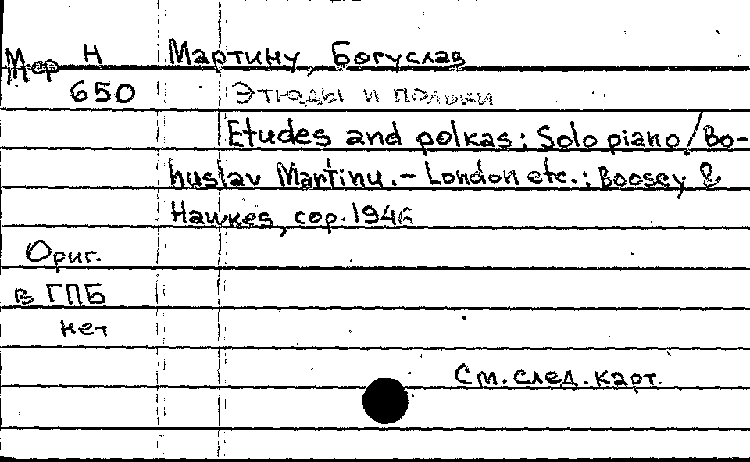 Мар Н Мартину, Богуслав
650 Этюды и польки
Etudes and polkas: Solo piano / Bo-
huslav Martinu. - London etc.: Boosey &
Hawkes, cop. 1946
Ориг.
в ГПБ
нет
См. след. карт.